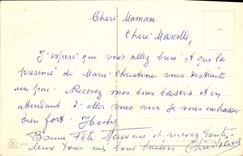 Cheri Maman
Cheri Marcelle,
J'espère que vous allez bien et que la
présence de Marie-Christine vous distrait
un peu. Recevez mes bons baisers et en
attendant d'aller vous voir je vous embrasse
bien fort.
Bonne Fête Maman et recevez toutes
deux tous nos bons baisers Christiane